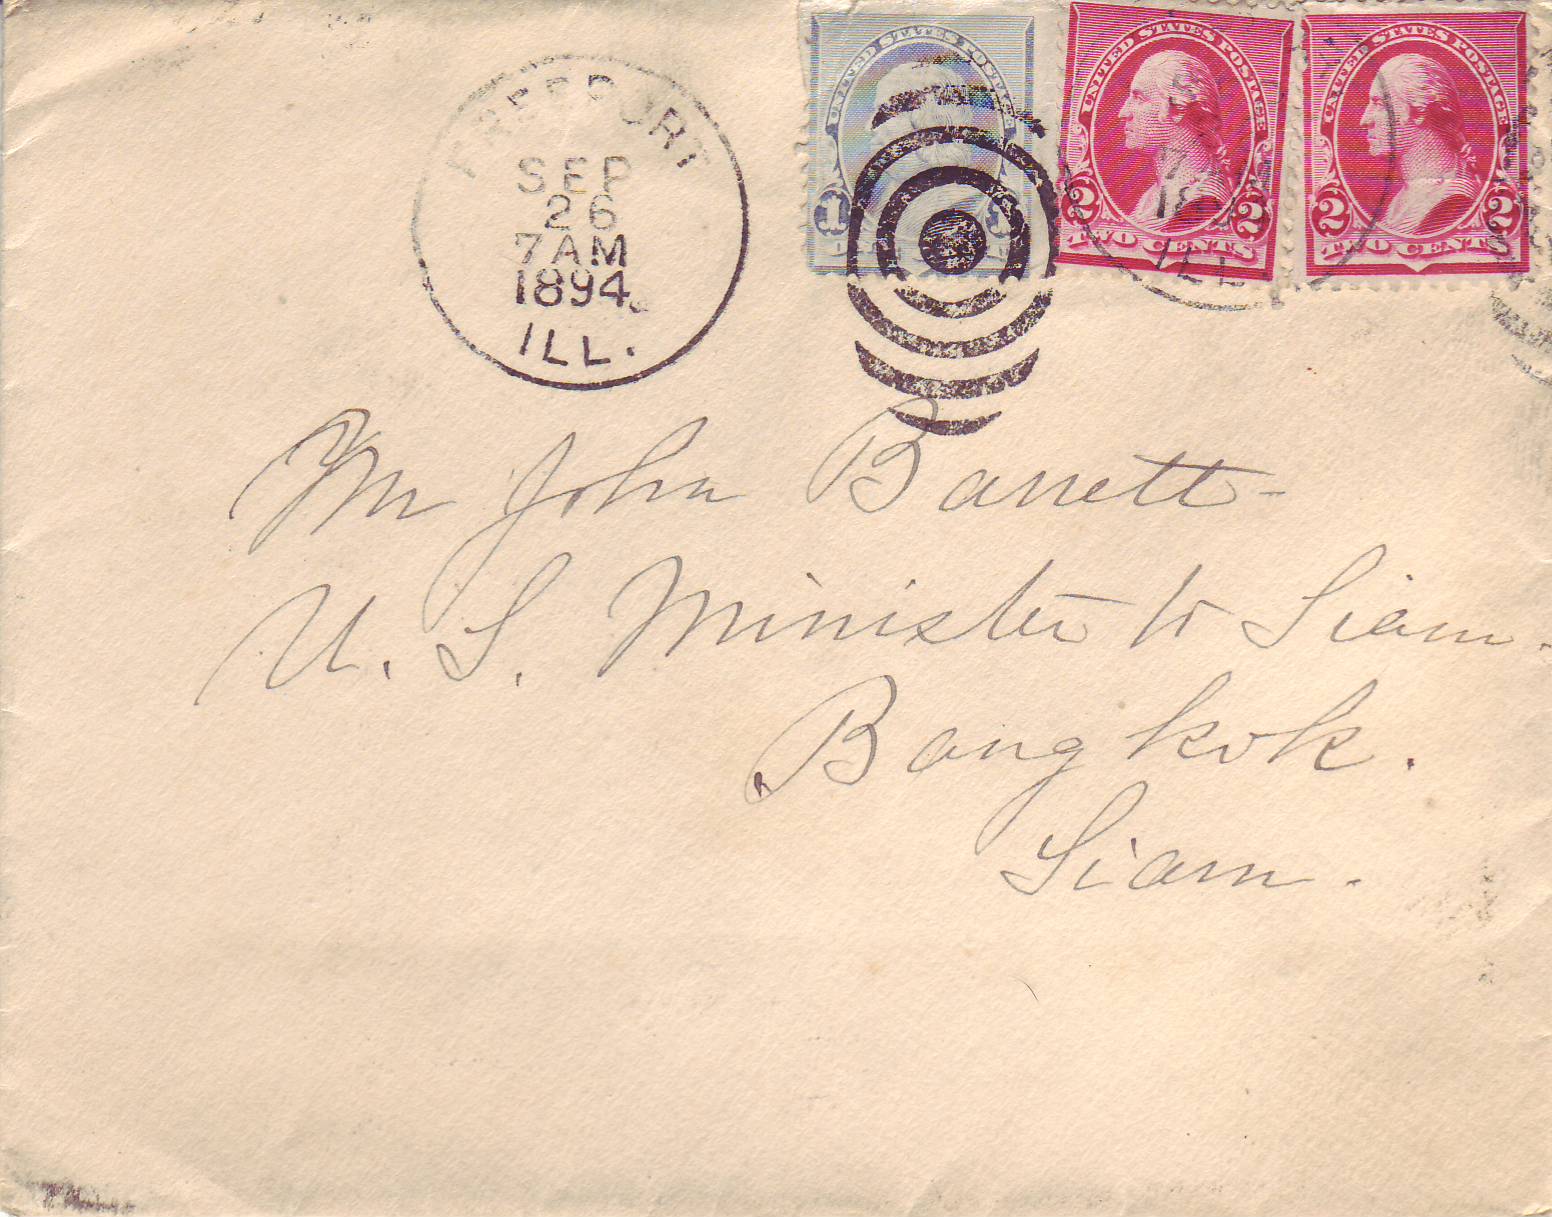 FREEPORT
SEP
26
7AM
1894
ILL.
UNITED STATES POSTAGE
1
UNITED STATES POSTAGE
2 2
TWO CENTS
ILL
UNITED STATES POSTAGE
2 2
TWO CENTS
Mr John Barrett-
U. S. Minister to Siam.
Bangkok.
Siam.